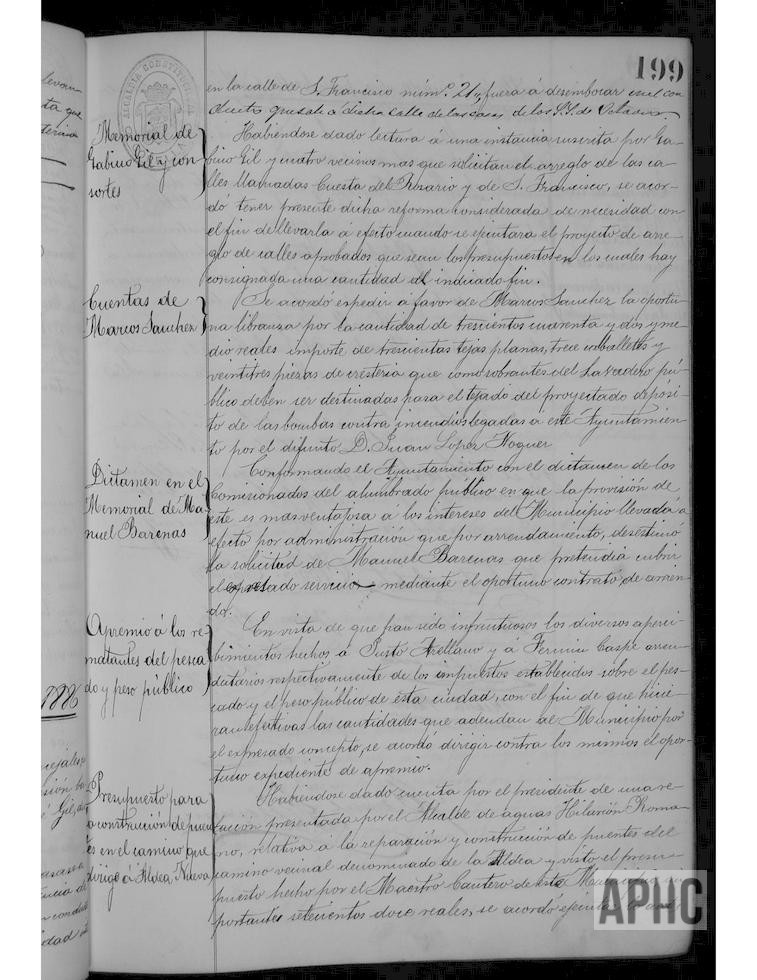 199
en la calle de S. Francisco núm.º 21, fuera á desembocar en el con
ducto que sale á dicha calle de las casas de los S.S. de
Memorial de
Gabino Gil y con
sortes
Habiéndose dado lectura á una instancia suscrita por Ga-
bino Gil y cuatro vecinos mas que solicitan el arreglo de las ca-
lles llamadas Cuesta del Rosario y de S. Francisco, se acor-
dó tener presente dicha reforma considerada de necesidad con
el fin de llevarla á efecto cuando se ejecutara el proyecto de arre-
glo de calles aprobados que sean los presupuestos en los cuales hay
consignaga una cantidad al indicado fin.
Cuentas de
Marcos Sanchez
Se acordó expedir á favor de Marcos Sanchez la oportu-
na libranza por la cantidad de trescientos cuarenta y dos y me-
dio reales importe de trescientas tejas planas, trece caballetes y
veintitres piezas de cresteria que como sobrantes del Lavadero pú-
blico deben ser destinadas para el tejado del proyectado depósi-
to de las bombas contra incendios legadas a este Ayuntamien-
to por el difunto D. Juan Lopez Noguer
Dictamen en el
Memorial de Ma
nuel Barenas
Conformando el Ayuntamiento con el dictamen de los
Comisionados del alumbrado público en que la provisión de
este es mas ventajosa á los intereses del Municipio llevada á
efecto por administración que por arrendamiento, desestimó
la solicitud de Manuel Barenas que pretendia cubrir
el expresado servicio mediante el oportuno contrato de arrien-
do.
Apremio á los re-
matantes del pesca
do y peso público
En vista de que han sido infructuosos los diversos aperci-
bimientos hechos á Justo Arellano y á Fermin Caspe arren-
datarios respectivamente de los impuestos establecidos sobre el pes-
cado y el peso público de esta ciudad, con el fin de que hicie-
ran efectivas las cantidades que adeudan al Municipio por
el expresado concepto, se acordó dirigir contra los mismos el opor-
tuno expediente de apremio.
Presupuesto para
la construcción de puen
tes en el camino que
dirige á Aldea Nueva
Habiéndose dado cuenta por el presidente de una re-
lación presentada por el Alcalde de aguas Hilarión Roma-
no, relativa á la reparación y construcción de puentes del
camino vecinal denominado de la Aldea y visto el presu-
puesto hecho por el Maestro Cantero de este
portante setecientos doce reales, se acordó
APHC
1886